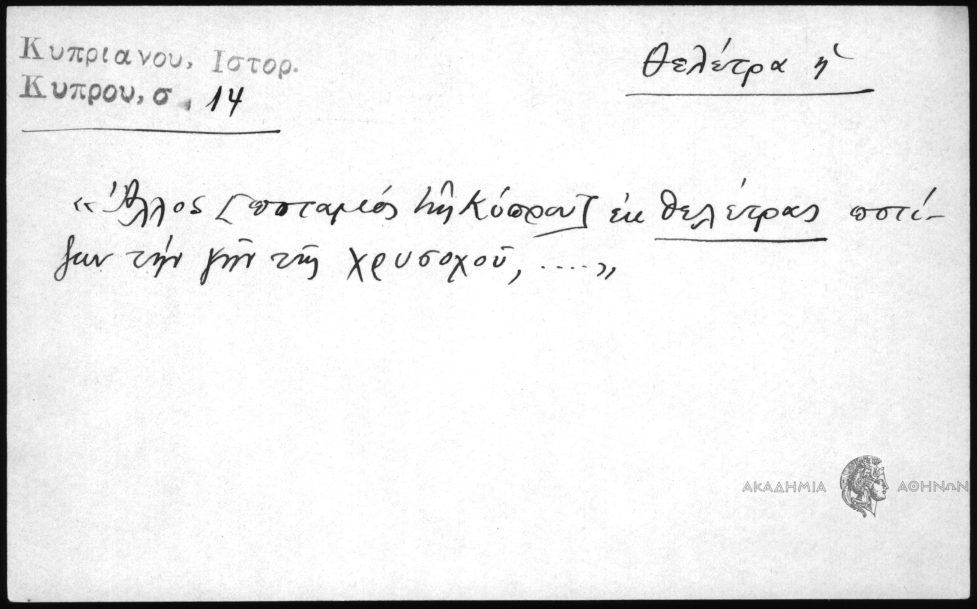 Κυπριανου, Ιστορ.
Κυπρου, σ. 14
Θελέτρα ἡ
«Ἄλλος [ποταμὸς τῆς Κύπρου] ἐκ Θελέτρας ποτί-
ζων τὴν γῆν τῆς Χρυσοχοῦ, ....»
ΑΚΑΔΗΜΙΑ ΑΘΗΝΩΝ